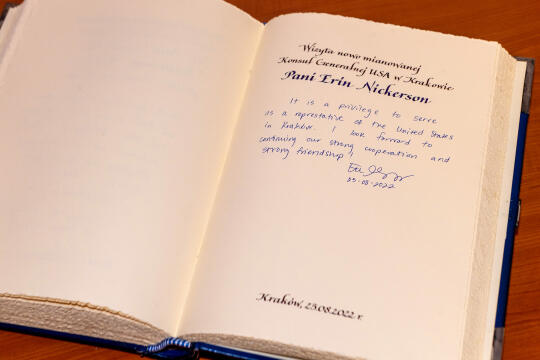 Wizyta nowo mianowanej
Konsul Generalnej USA w Krakowie
Pani Erin Nickerson
It is a privilege to serve
as a represtative of the United States
in Kraków. I look forward to
continuing our strong cooperation and
strong friendship!
03-08-2022
Kraków, 23.08.2022 r.